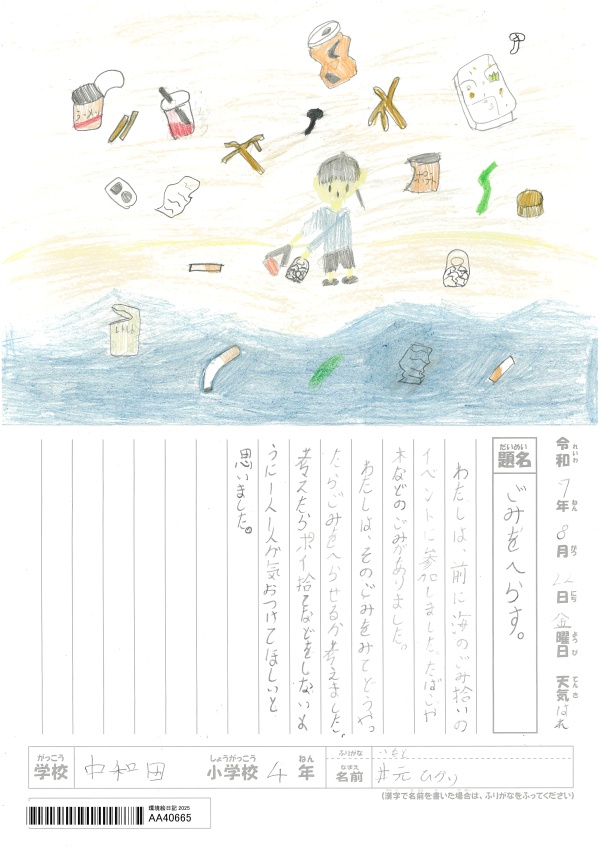 ラーメン
ポテト
レトルト
令和7年8月22日金曜日 天気はれ
れいわ ねん がつ にち ようび てんき
だいめい
題名
ごみをへらす。
わたしは、前に海のごみ拾いの
イベントに参加しました。たばこや
木などのごみがありました。
わたしは、そのごみをみてどうやっ
たらごみをへらせるか考えました。
考えたらポイ捨てなどをしないよ
うに一人一人が気おつけてほしいと
思いました。
がっこう しょうがっこう ねん
学校 中和田 小学校 4年
ふりがな いもと
なまえ
名前 井元
(漢字で名前を書いた場合は、ふりがなをふってください)
環境絵日記 2025
AA40665